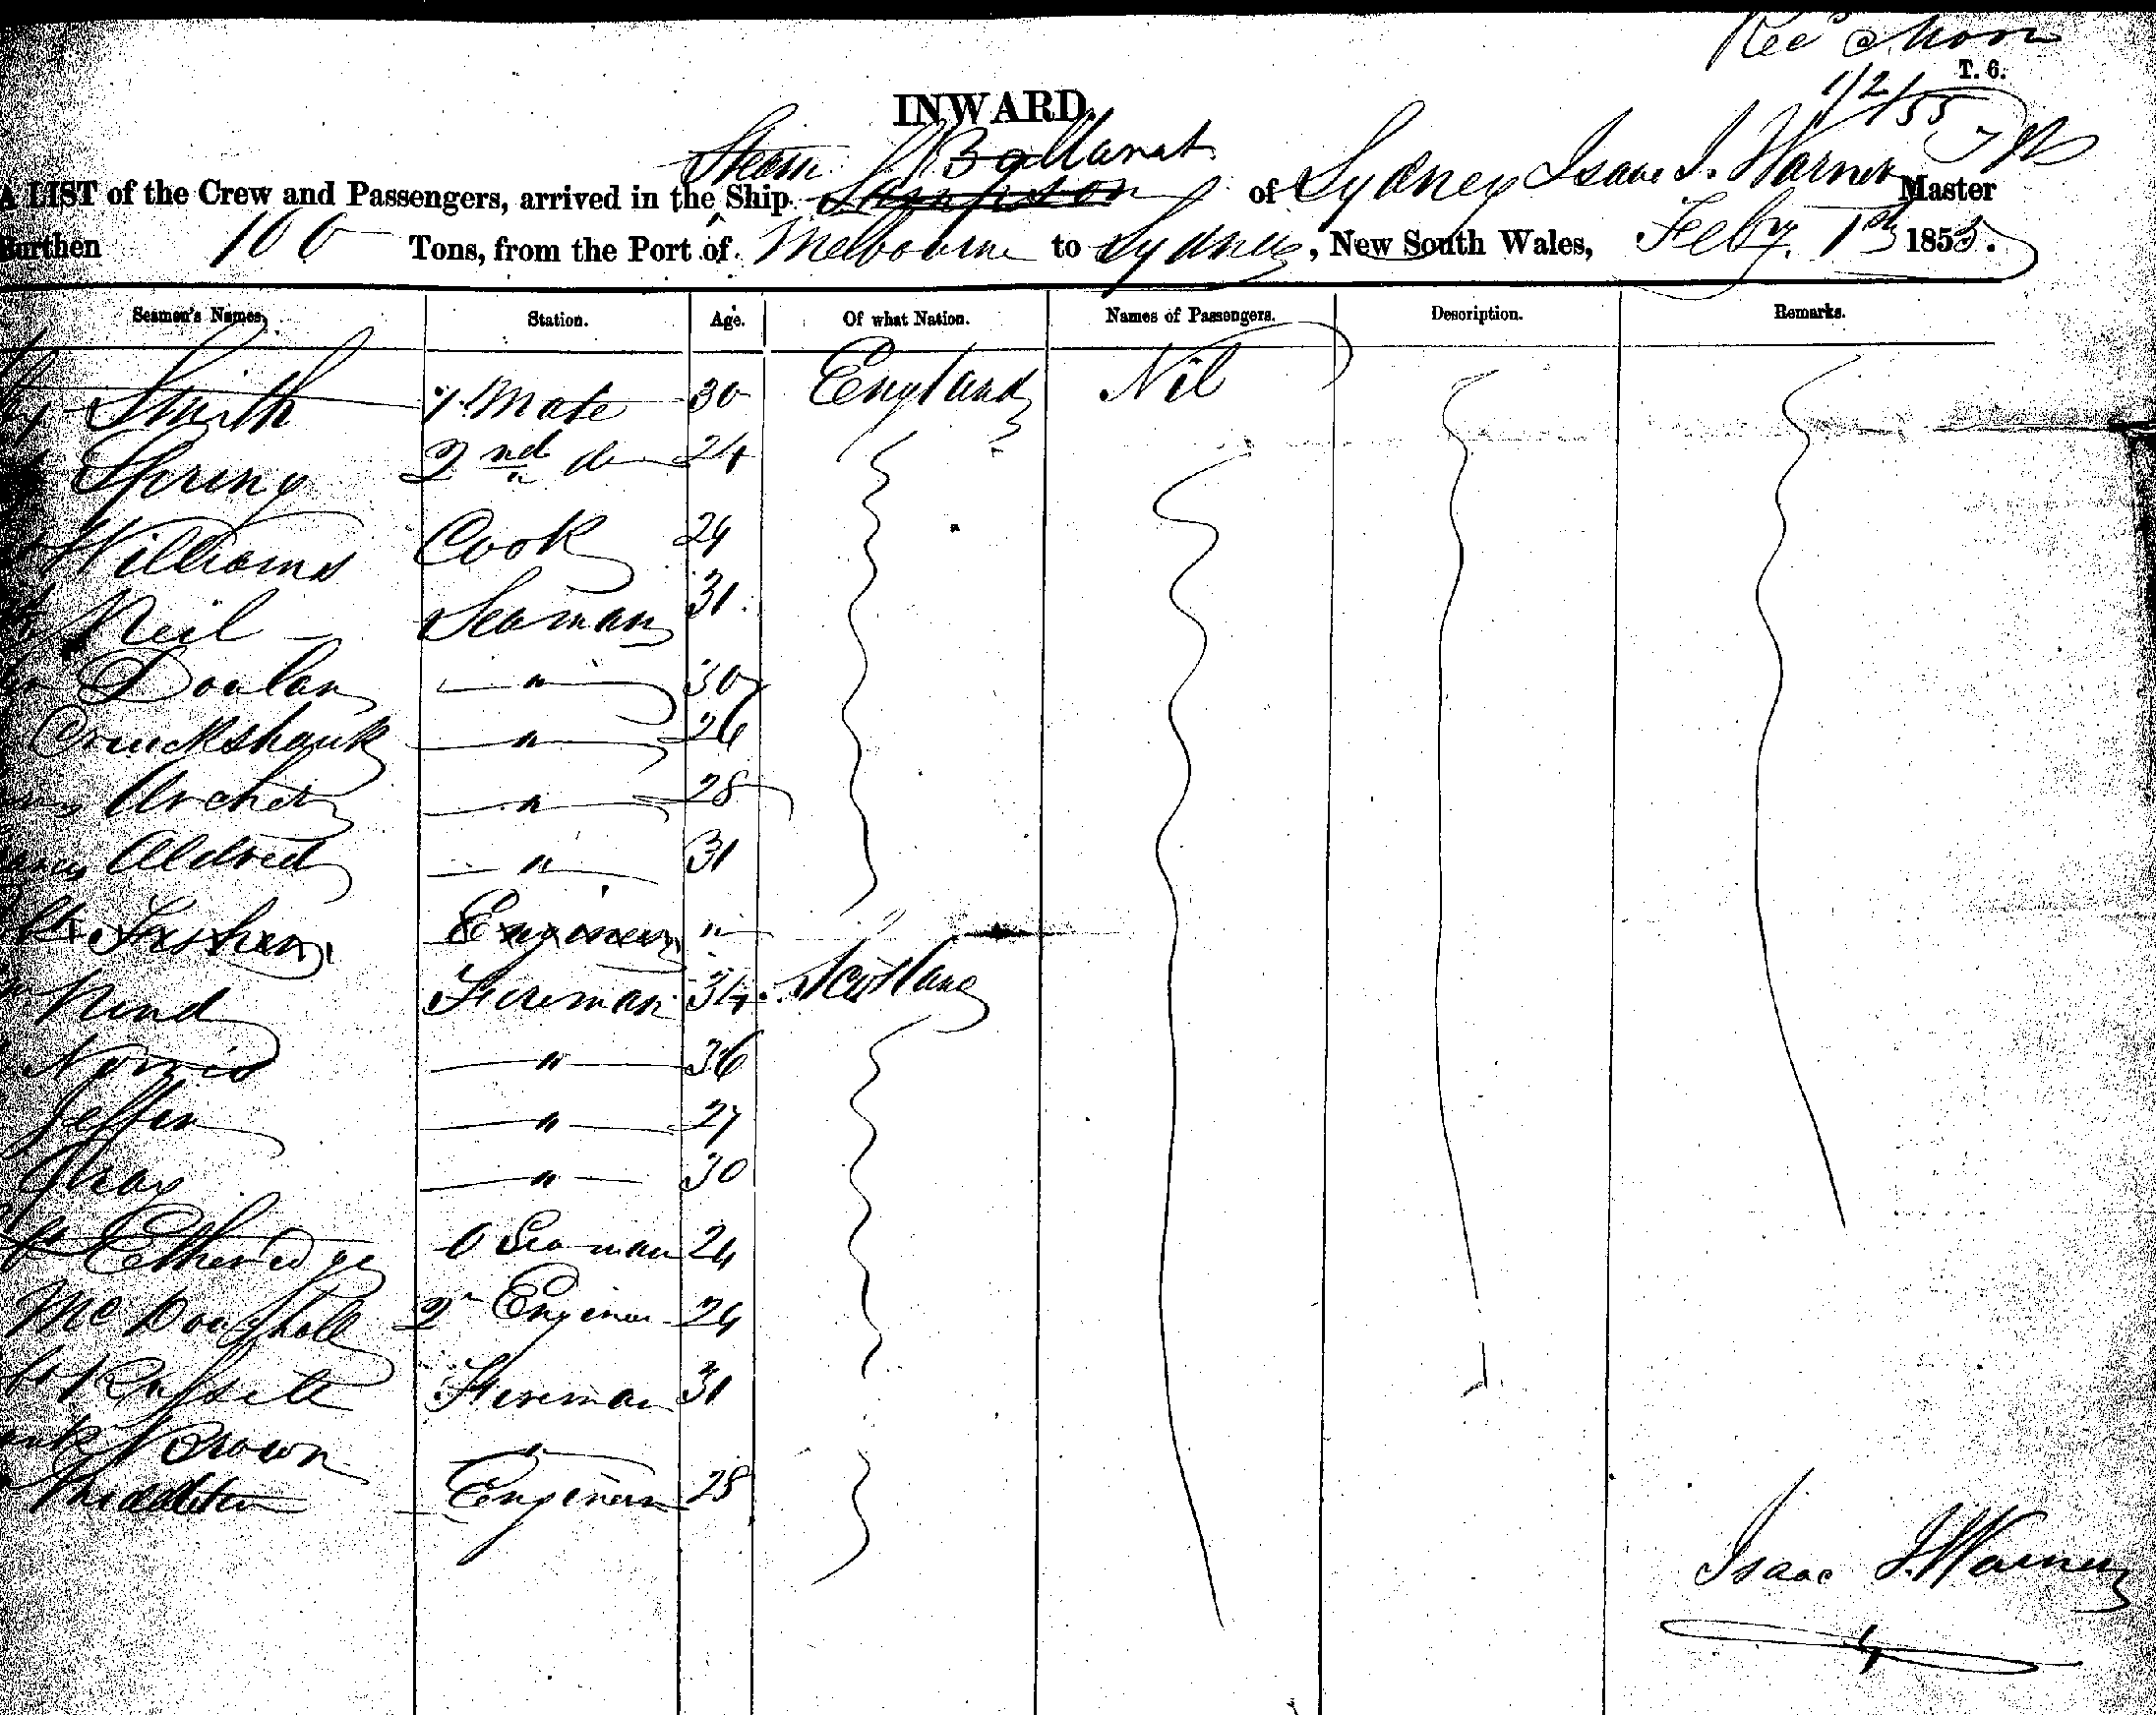 Noon
T. 6.
1/2/55
INWARD.
Steam Ballarat
A LIST of the Crew and Passengers, arrived in the Ship Sampson of Sydney Isaac J. Warner Master
Burthen 100 Tons, from the Port of Melbourne to Sydney, New South Wales, Feby. 1st 1855.
Seamen's Names, Station. Age. Of what Nation. Names of Passengers. Description. Remarks.
Smith 1. Mate 30 England Nil
Spring 2nd do 24
Williams Cook 24
Neil Seaman 31
Doulan " 30
Cruickshank " 26
Archer " 28
Aldred " 31
Engineer "
Nind Fireman 34 Scotland
Norris " 36
Jeffer " 27
Gray " 30
Etheredge O Seaman 24
McDoughall 2n Engineer 24
Russell Fireman 31
Brown "
Middleton Engineer 28
Isaac J. Warner